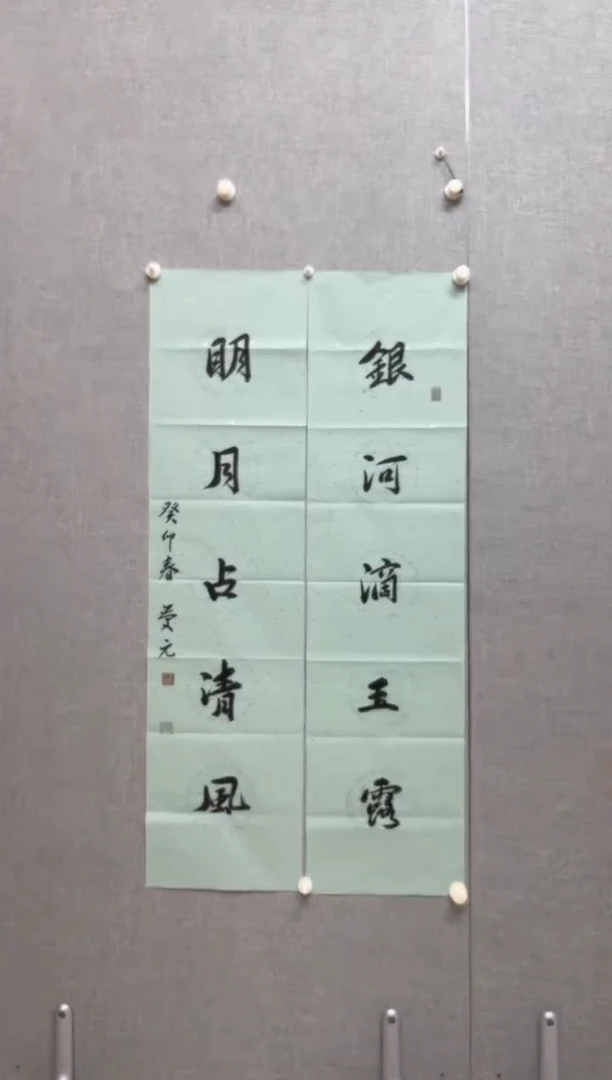 銀河滴玉露
明月占清風
癸卯春 元